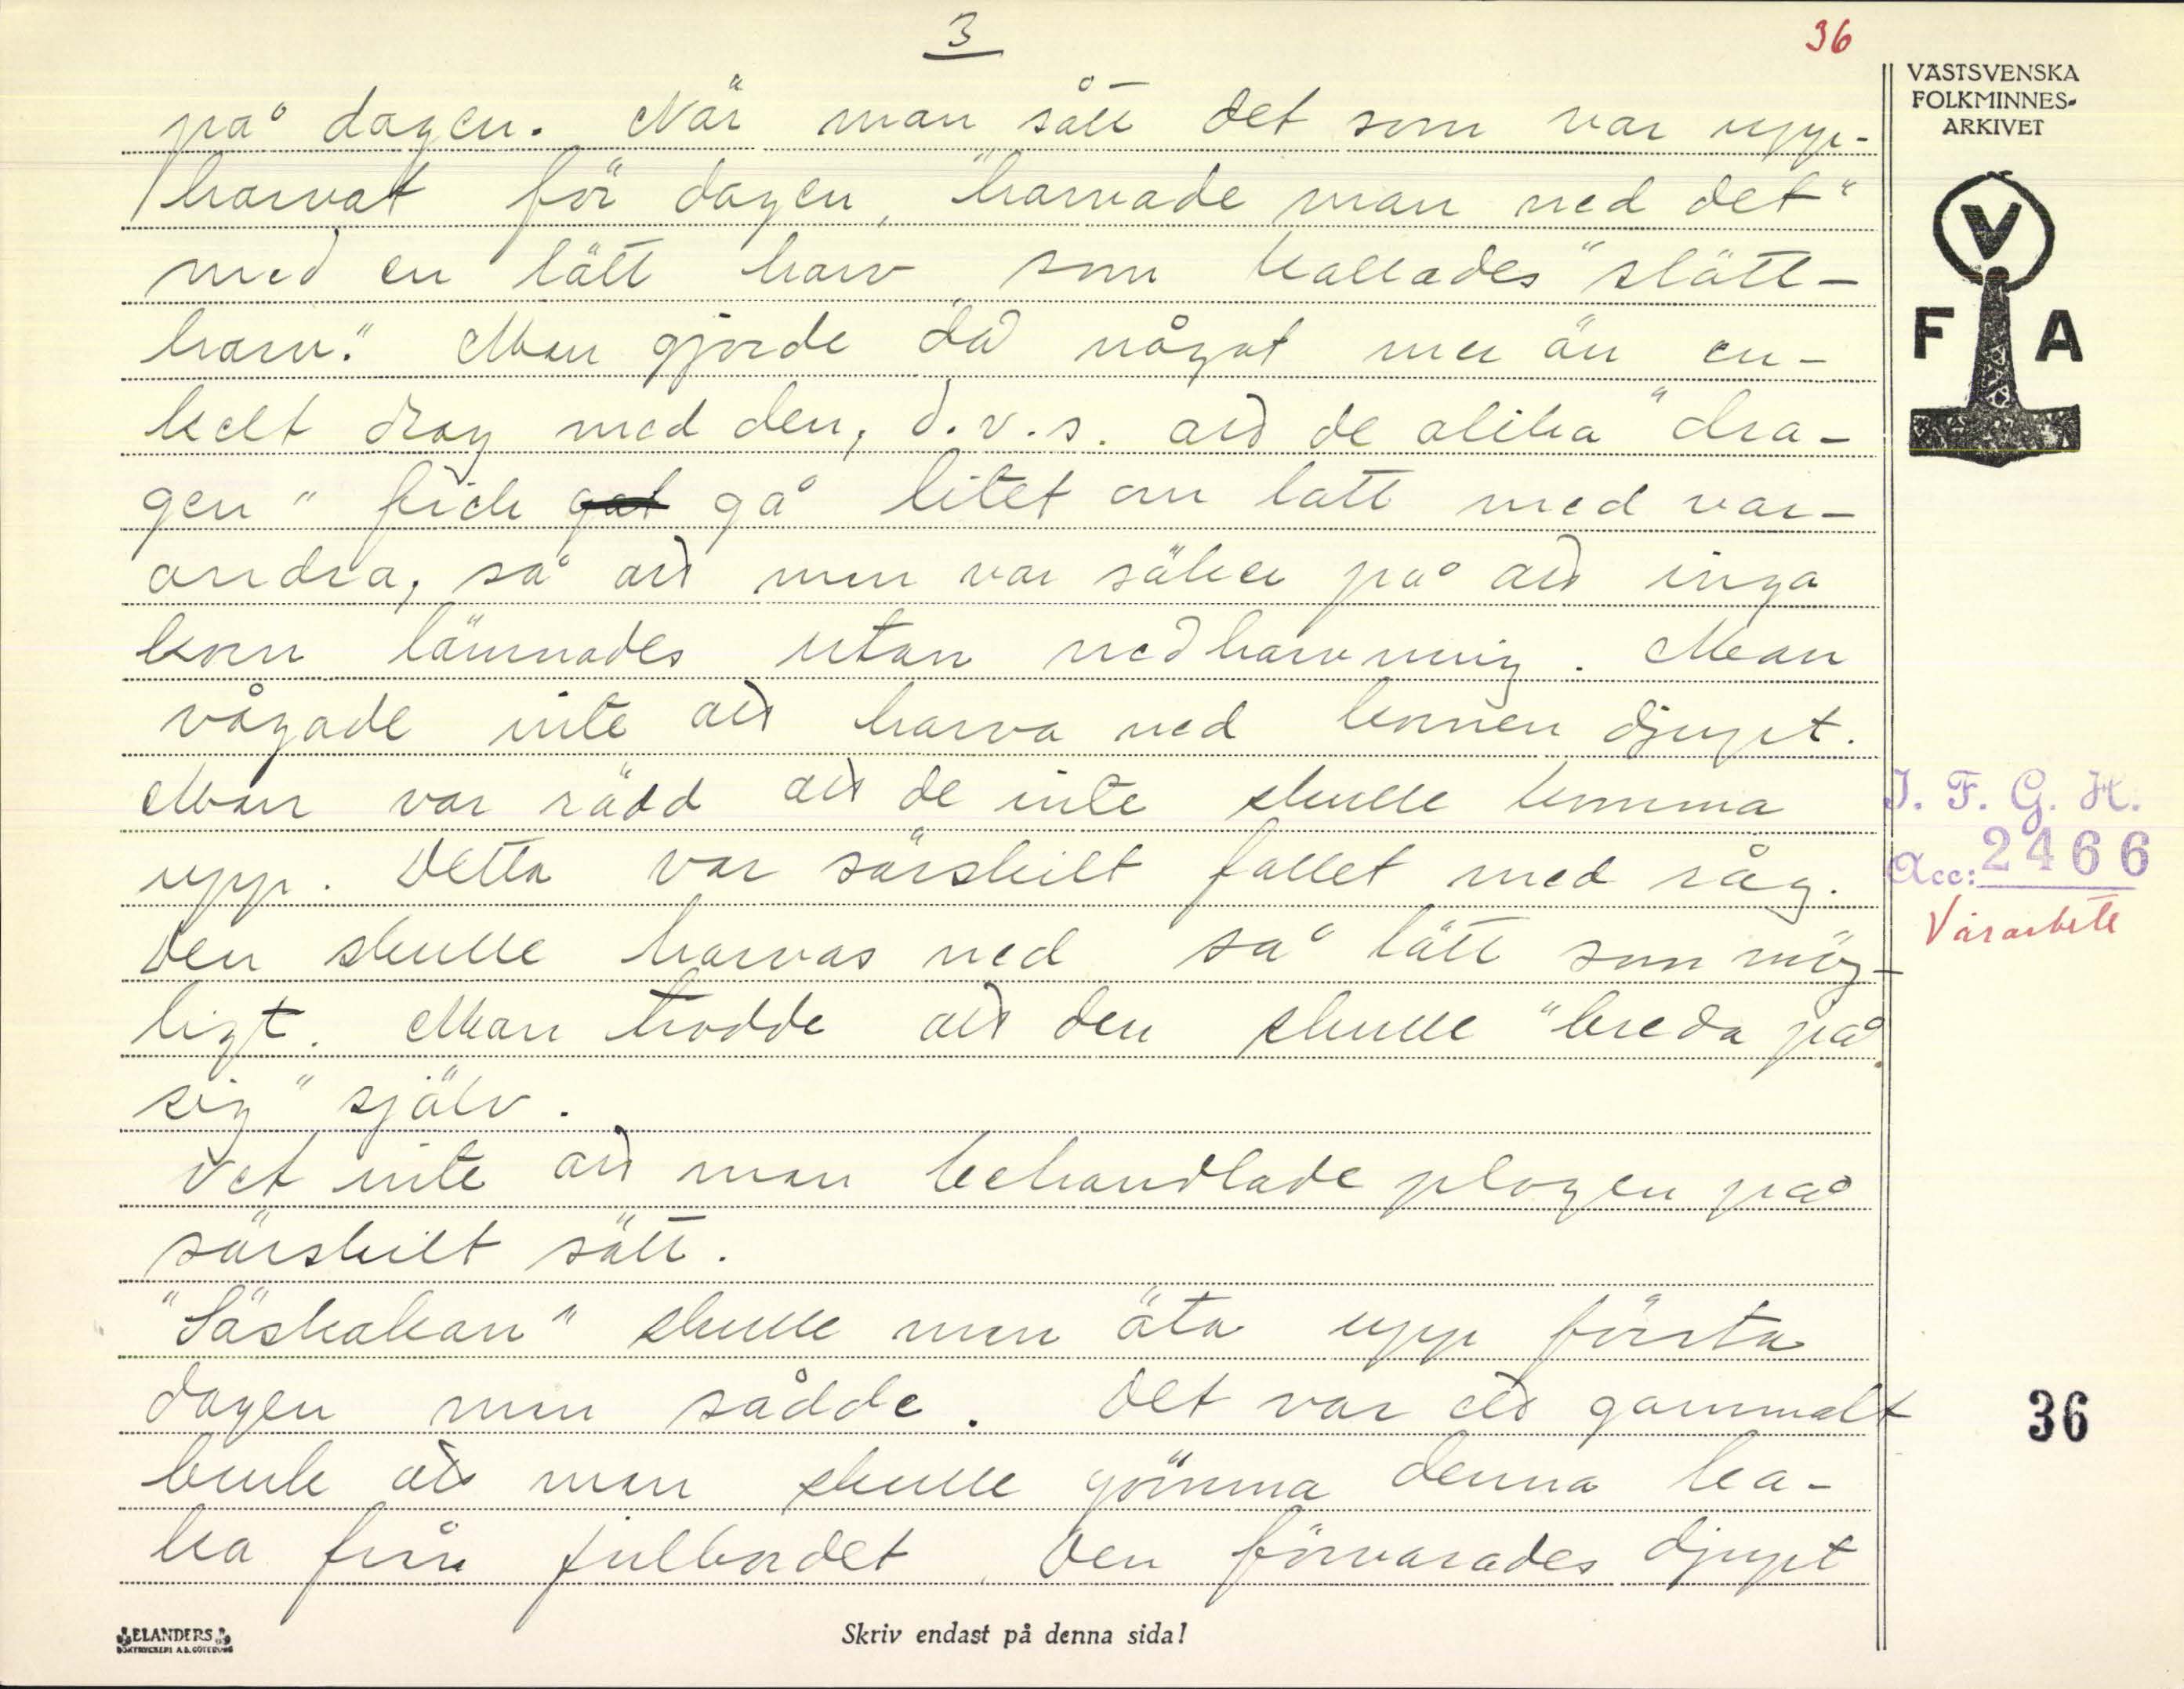 3
36
på dagen. När man sått det som var upp-
harvat för dagen, "harvade man ned det"
med en lätt harv som kallades "slätt-
harv." Man gjorde då något mer än en-
kelt drag med den, d.v.s. att de olika "dra-
gen" fick gå litet om latt med var-
andra, så att man var säker på att inga
korn lämnades utan nedharvning. Man
vågade inte att harva ned kornen djupt.
Man var rädd att de inte skulle komma
upp. Detta var särskilt fallet med råg.
Den skulle harvas ned så lätt som möj-
ligt. Man trodde att den skulle "breda på
sig" själv.
Vet inte att man behandlade plogen på
särskilt sätt.
"Såskakan" skulle man äta upp första
dagen man sådde. Det var ett gammalt
bruk att man skulle gömma denna ka-
ka från julbordet. Den förvarades djupt
VÄSTSVENSKA
FOLKMINNES-
ARKIVET
V
F A
I. F. G. H.
Acc: 2466
Vårarbete
36
ELANDERS
BOKTRYCKERI A.B. GÖTEBORG
Skriv endast på denna sida!